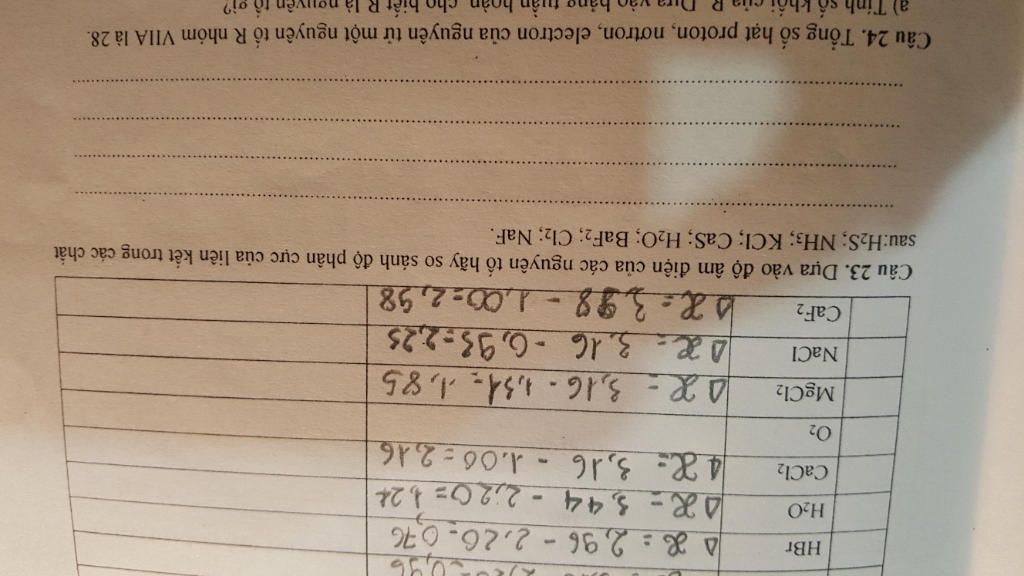 2,20=0,96
HBr Δx = 2,96 - 2,20=0,76
H₂O Δx = 3,44 - 2,20=1,24
CaCl₂ Δx = 3,16 - 1.00 = 2,16
O₂
MgCl₂ Δx = 3,16 - 1,31 = 1,85
NaCl Δx = 3,16 - 0,93=2,23
CaF₂ Δx = 3,98 - 1,00=2,98
Câu 23. Dựa vào độ âm điện của các nguyên tố hãy so sánh độ phân cực của liên kết trong các chất
sau:H₂S; NH₃; KCl; CaS; H₂O; BaF₂; Cl₂; NaF.
Câu 24. Tổng số hạt proton, nơtron, electron của nguyên tử một nguyên tố R nhóm VIIA là 28.
a) Tính số khối của R. Dựa vào bảng tuần hoàn, cho biết R là nguyên tố gì?